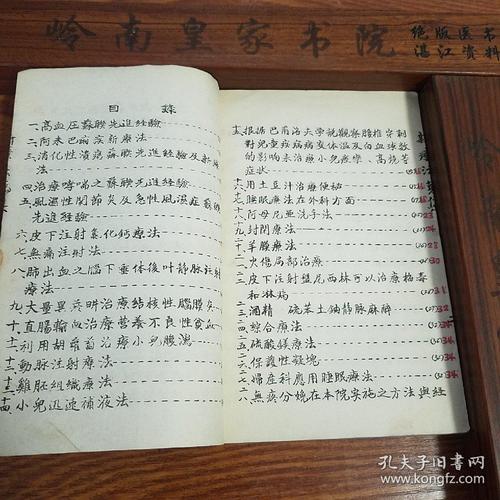 岭南皇家书院
绝版医书
湛江资料
目 錄
一、高血压蘇联先進経驗
二、阿米巴痢疾新療法
三、消化性潰瘍蘇联先進経驗及新療
法
四治療哮喘之蘇联先進経驗
五、風濕性関節炎及急性風濕症蘇联
先進経驗
六、皮下注射氯化钙療法
七無痛注射法
八肺出血之腦下垂体後叶静脉注射
療法
九大量異烟肼治療結核性腦膜炎
十、直腸輸血治療营養不良性貧血
十一利用胡蘿蔔治療小兒腹瀉
十二動脉注射療法
十三雞胚組織療法
十四小兒迅速補液法
十五、根据巴甫洛夫学説觀察脊椎穿刺
對兒童疾病病变体温及白血球数
的影响来治療小兒瘧攣、高燒等
症狀
十六、用土豆汁治療便祕
十七、睡眠療法在外科方面
十八、阿母尼亚洗手法
十九封閉療法
二十、羊膜療法
二一、火傷局部治療
二二、皮下注射盤尼西林可以治療梅毒
和淋病
二三、酒精 硫苯土鈉静脉麻醉
二四綜合療法
二五、硫酸鎂療法
二六、保護性凝塊
二七婦產科應用睡眠療法
二八、無疾分娩在本院实施之方法與経
孔夫子旧書网
www.kongfz.com